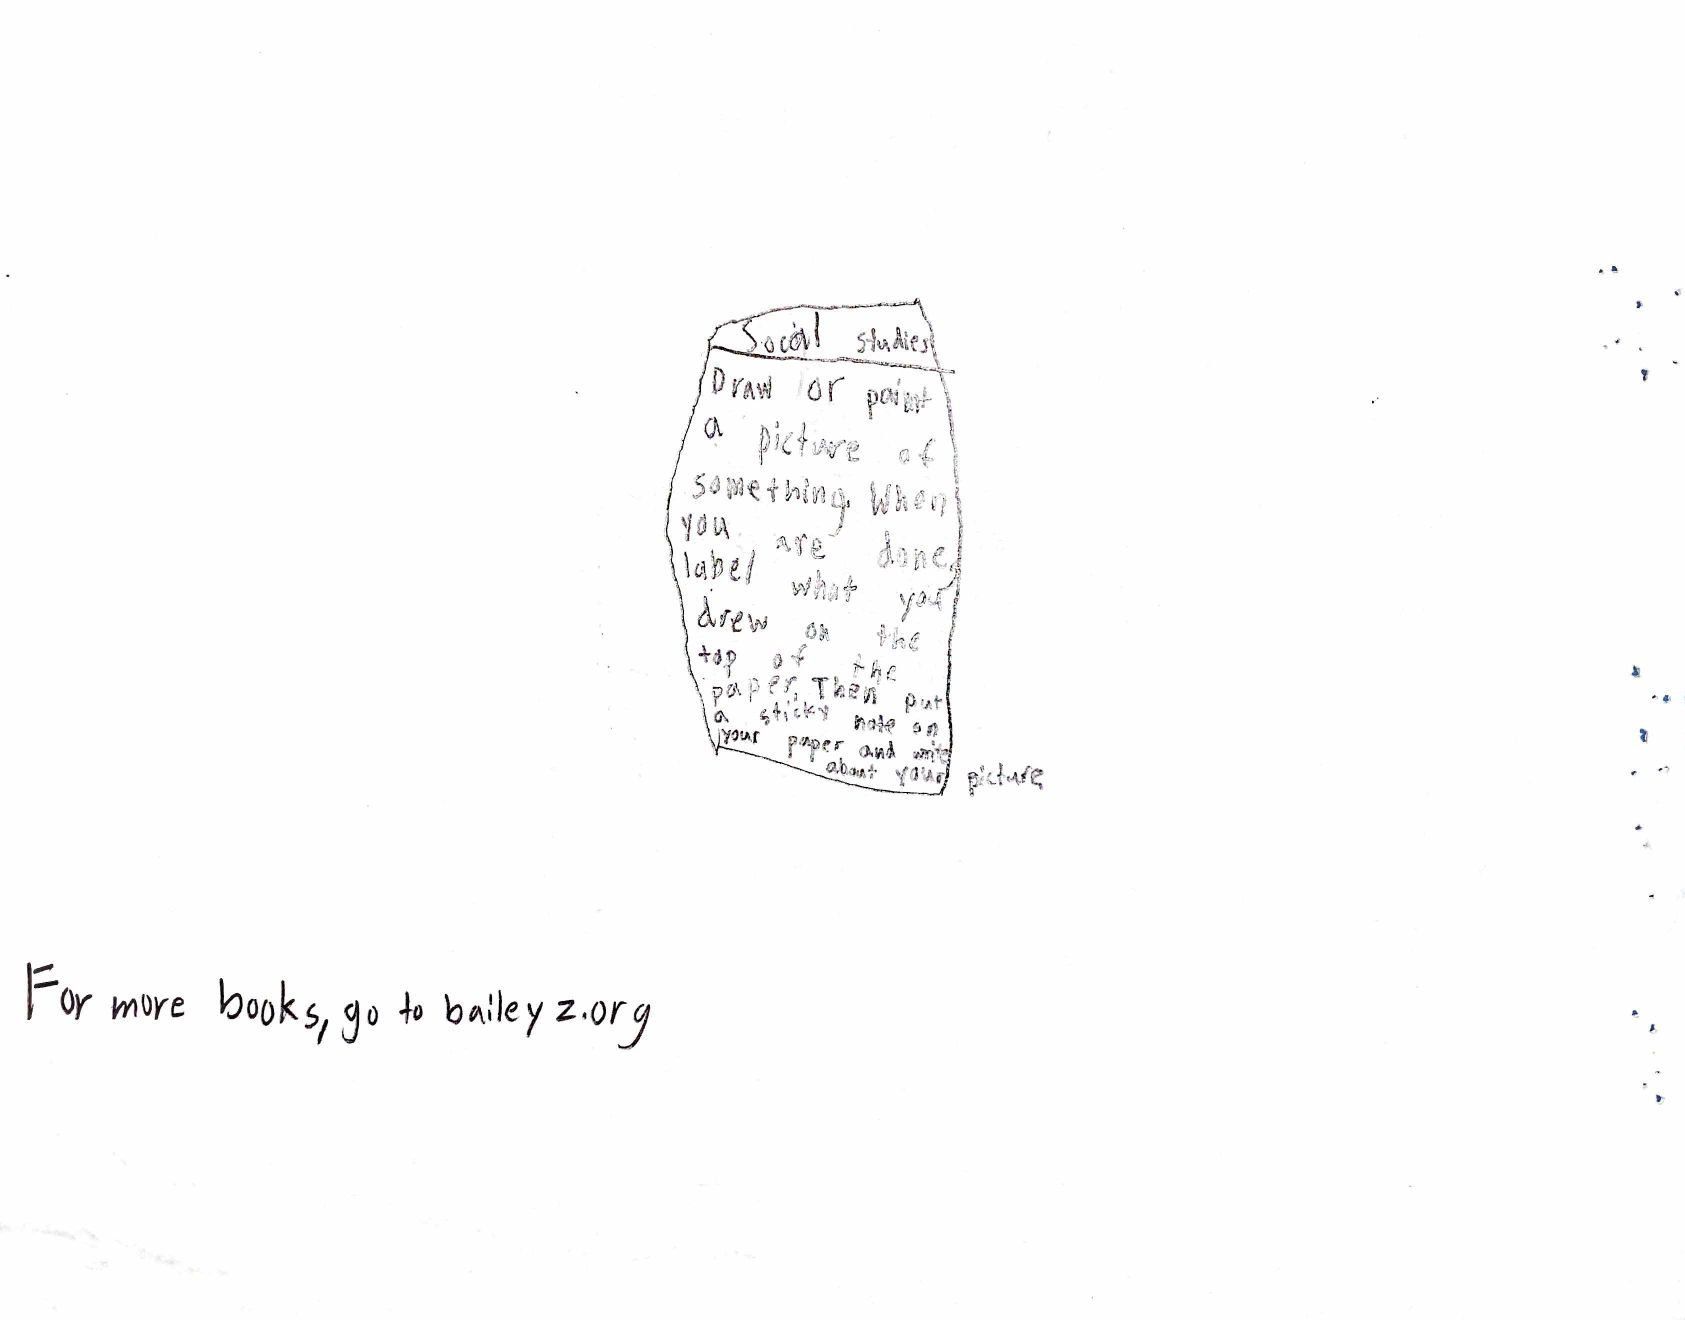 Social studies
Draw or paint
a picture of
something. When
you are done,
label what you
drew on the
top of the
paper. Then put
a sticky note on
your paper and write
about your picture
For more books, go to baileyz.org